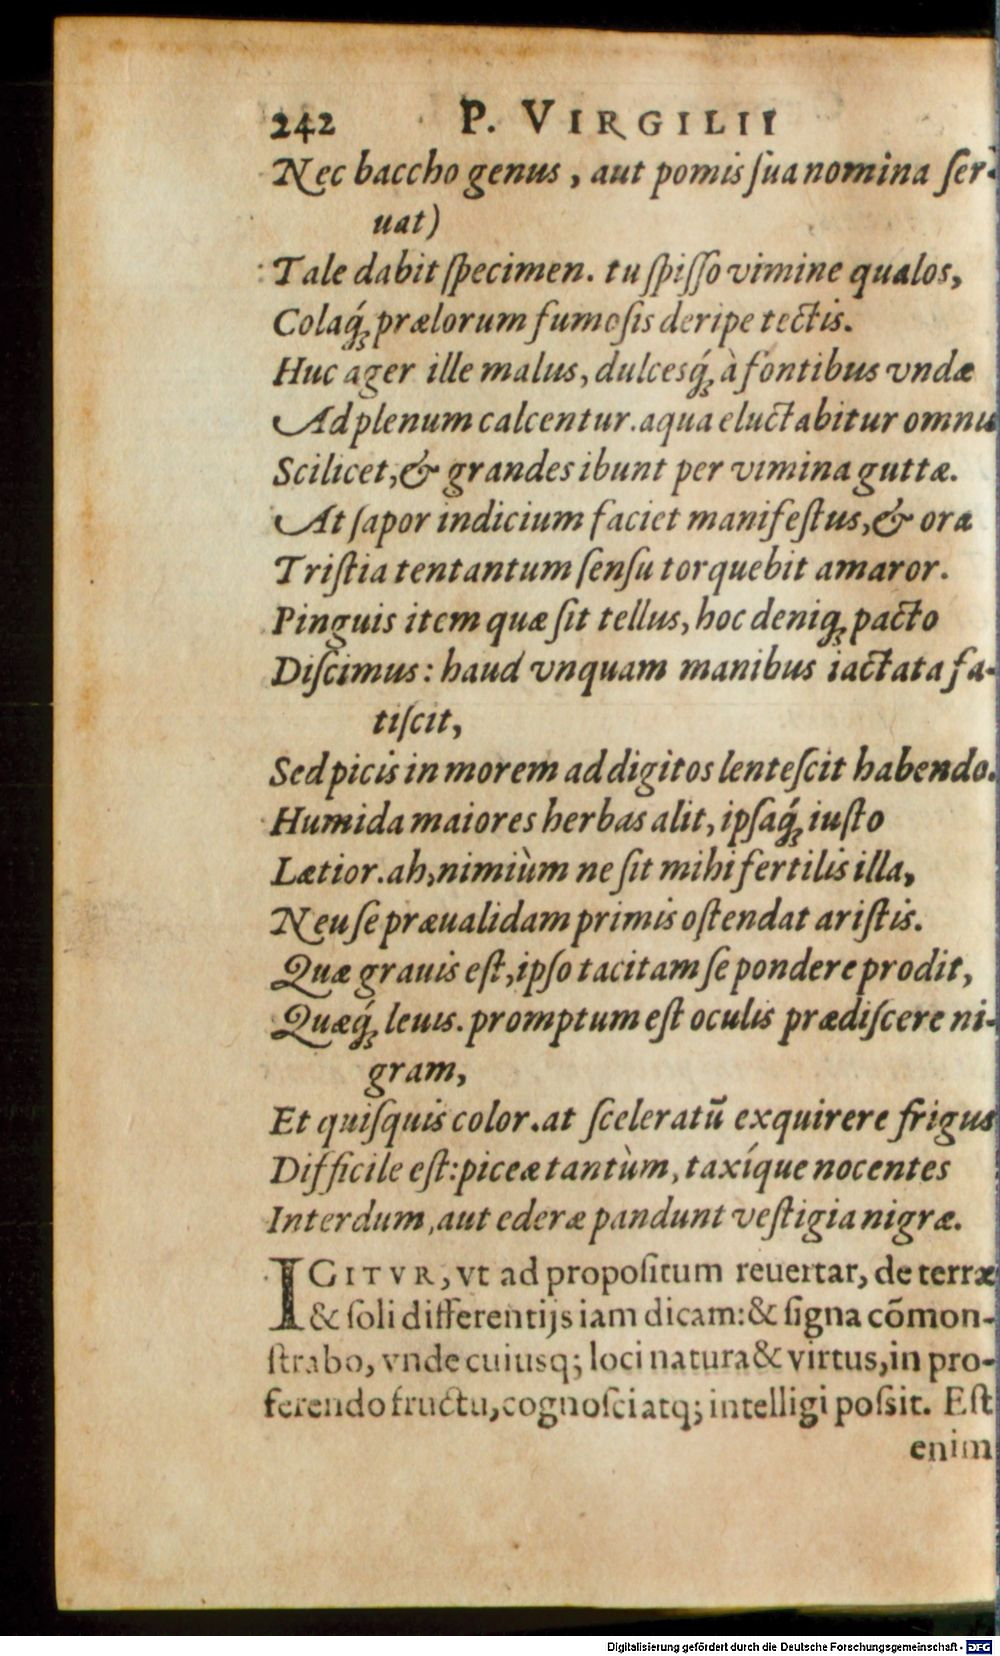 242 P. VIRGILII
Nec baccho genus, aut pomis ſua nomina ſer-
uat)
Tale dabit ſpecimen. tu ſpiſſo vimine qualos,
Colaq́ꝫ prælorum fumoſis deripe tectis.
Huc ager ille malus, dulcesq́ꝫ à fontibus vndæ
Ad plenum calcentur. aqua eluctabitur omnis
Scilicet, & grandes ibunt per vimina guttæ.
At ſapor indicium faciet manifeſtus, & ora
Triſtia tentantum ſenſu torquebit amaror.
Pinguis item quæ ſit tellus, hoc deniqꝫ pacto
Diſcimus: haud vnquam manibus iactata fa-
tiſcit,
Sed picis in morem ad digitos lenteſcit habendo.
Humida maiores herbas alit, ipſaq́ꝫ iuſto
Lætior. ah, nimiùm ne ſit mihi fertilis illa,
Neu ſe præualidam primis oſtendat ariſtis.
Quæ grauis eſt, ipſo tacitam ſe pondere prodit,
Quæq́ꝫ leuis. promptum eſt oculis prædiſcere ni-
gram,
Et quiſquis color. at ſceleratū exquirere frigus
Difficile eſt: piceæ tantùm, taxíque nocentes
Interdum, aut ederæ pandunt veſtigia nigræ.
IGITVR, vt ad propoſitum reuertar, de terræ
& ſoli differentijs iam dicam: & ſigna cõmon-
ſtrabo, vnde cuiusq; loci natura & virtus, in pro-
ferendo fructu, cognoſci atq; intelligi poſsit. Eſt
enim
Digitalisierung gefördert durch die Deutsche Forschungsgemeinschaft - DFG